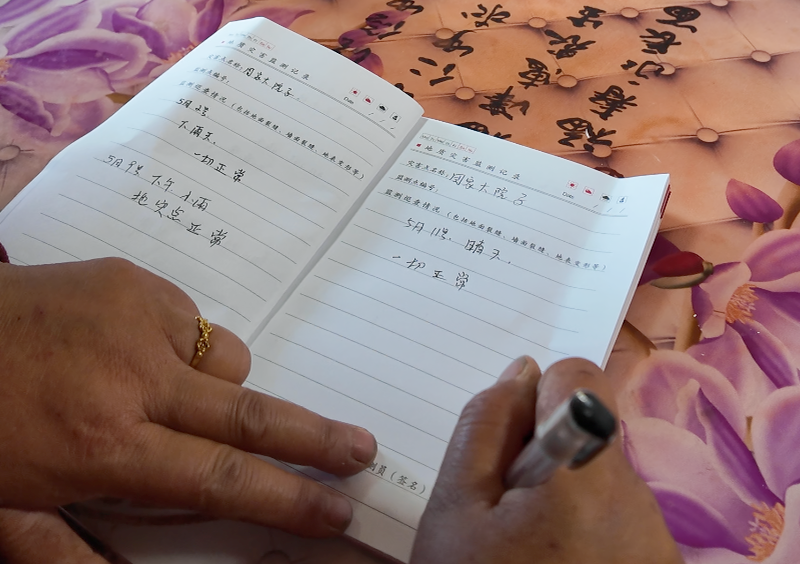 地质灾害监测记录
灾害点名称：周家大院子.
监测点编号：
监测巡查情况（包括地面裂缝、墙面裂缝、地表变形等）
5月2号
下雨天.
一切正常
5月9号 下午 小雨
地灾点正常
Date
地质灾害监测记录
灾害点名称：周家大院子
监测点编号：
监测巡查情况（包括地面裂缝、墙面裂缝、地表变形等）
5月11号. 晴天.
一切正常
Date
测员（签名）